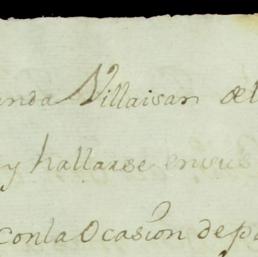 anda Villaisan del
y hallarse en sus
con la Ocasion de pa